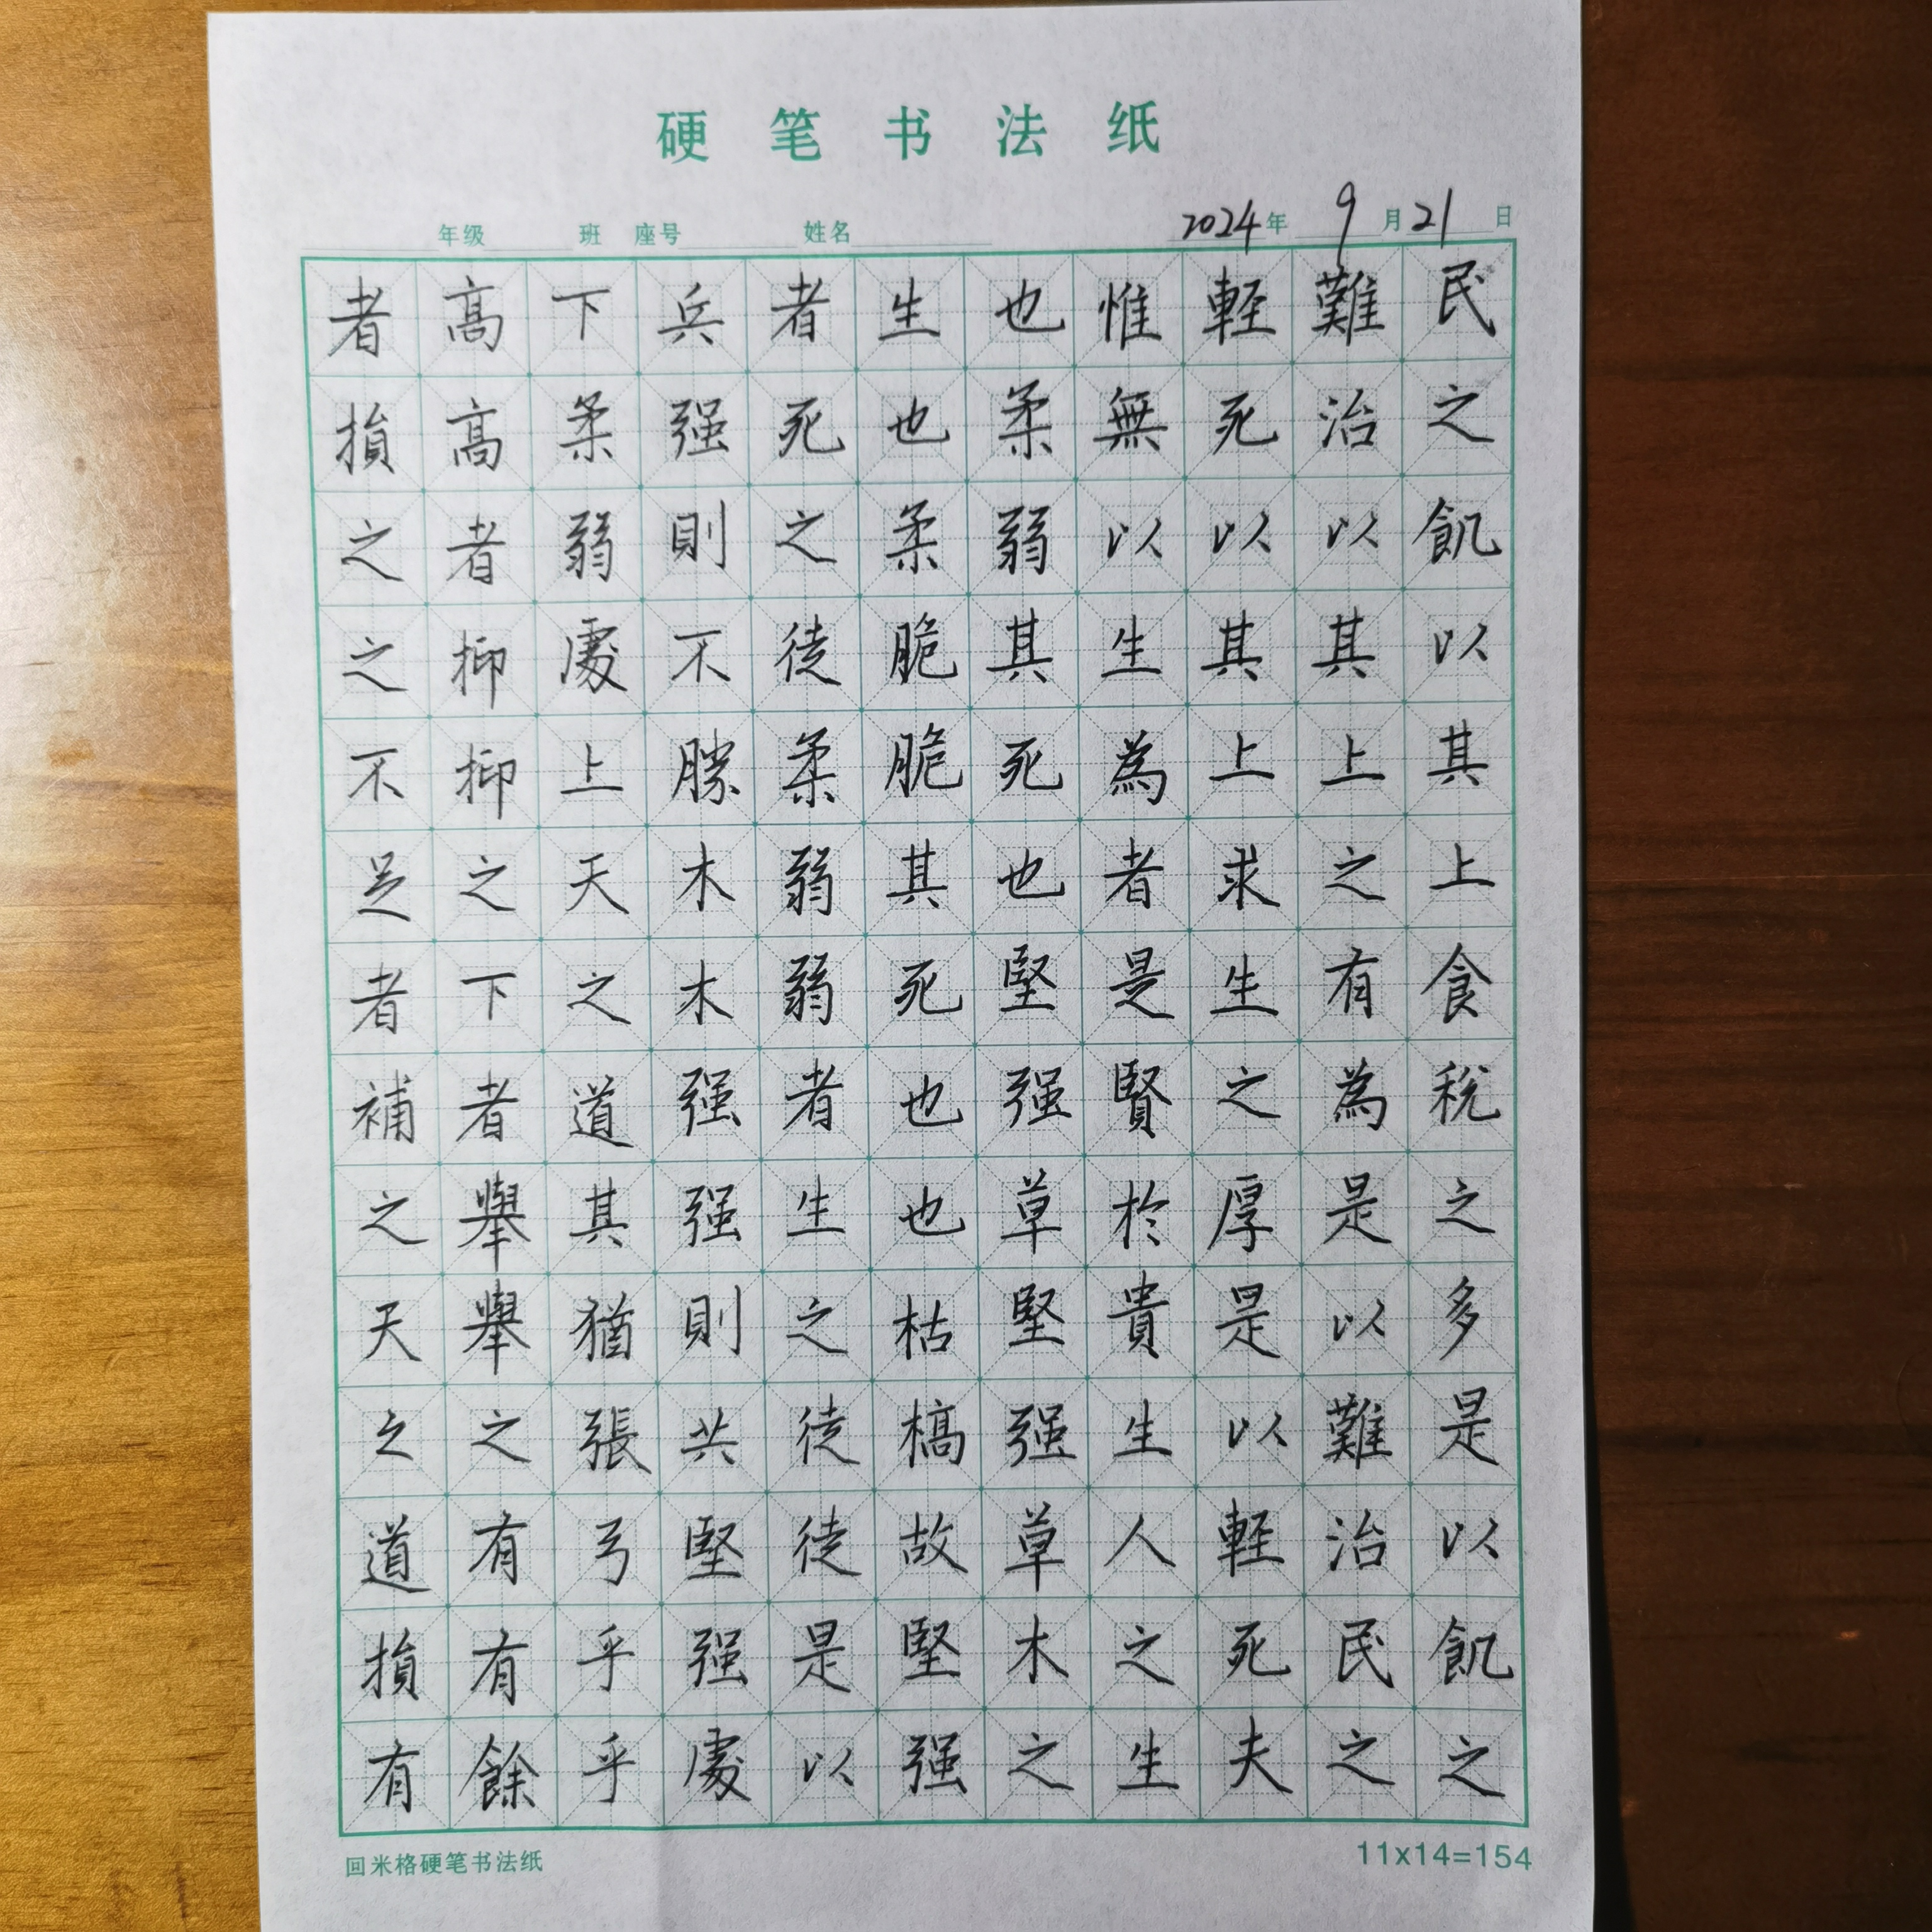 硬笔书法纸
年级 班 座号 姓名 2024年 9月21日
民之飢以其上食税之多是以飢之
難治以其上之有為是以難治民之
輕死以其上求生之厚是以輕死夫
惟無以生為者是賢於貴生人之生
也柔弱其死也堅强草堅强草木之
生也柔脆脆其死也也枯槁故堅强
者死之徒柔弱弱者生之徒徒是以
兵强則不勝木木强强則共堅强處
下柔弱處上天之道其猶張弓乎乎
高高者抑抑之下者舉舉之有有餘
者損之之不足者補之天之道損有
回米格硬笔书法纸
11x14=154